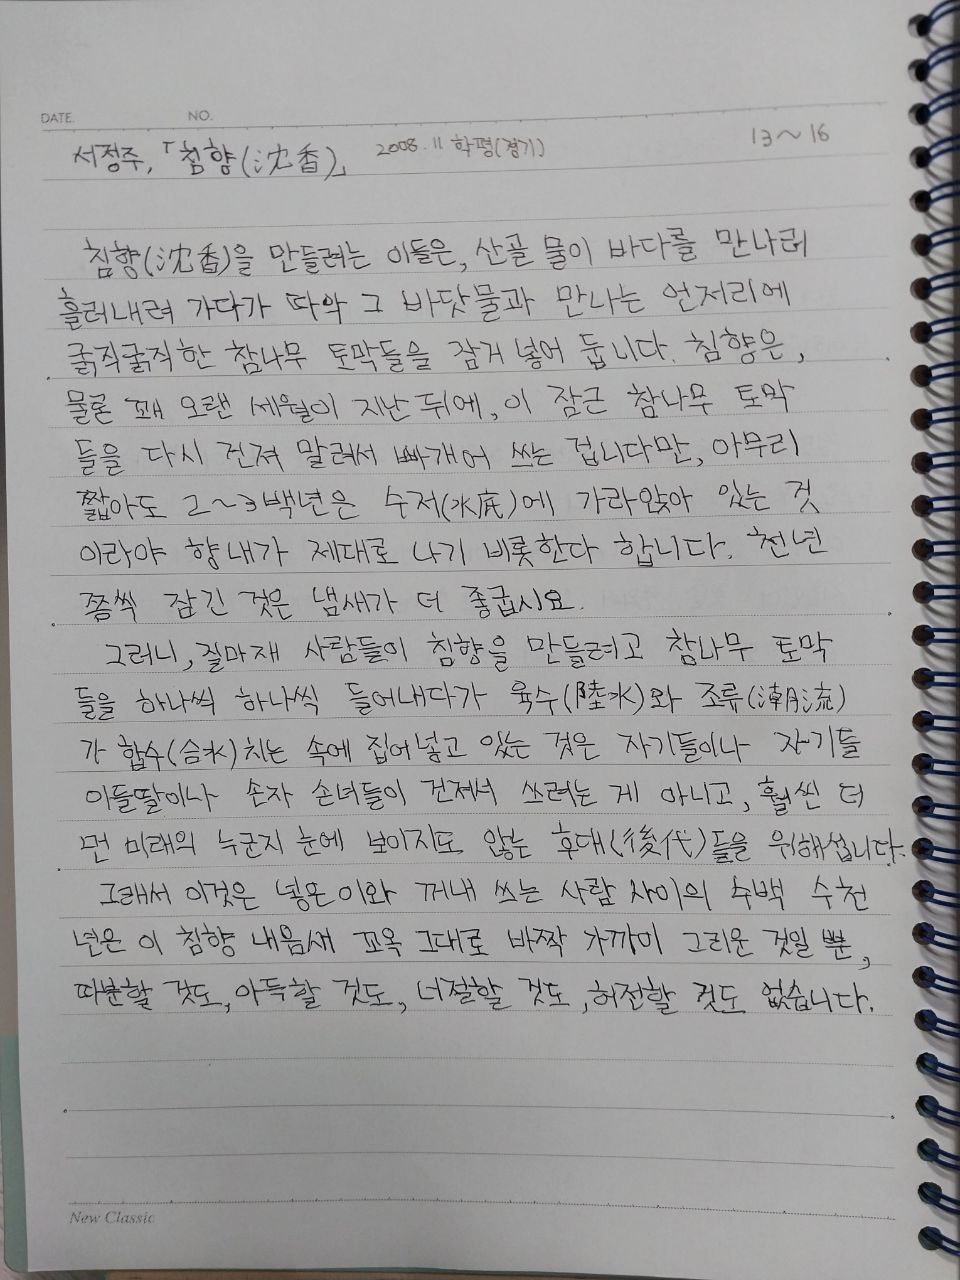 DATE. NO.
서정주, 「침향(沈香)」 2008. 11 학평(경기) 13~16
침향(沈香)을 만들려는 이들은, 산골 물이 바다를 만나러
흘러내려 가다가 따악 그 바닷물과 만나는 언저리에
굵직굵직한 참나무 토막들을 잠거 넣어 둡니다. 침향은,
물론 꽤 오랜 세월이 지난 뒤에, 이 잠근 참나무 토막
들을 다시 건져 말려서 빠개어 쓰는 겁니다만, 아무리
짧아도 2~3백년은 수저(水底)에 가라앉아 있는 것
이라야 향내가 제대로 나기 비롯한다 합니다. 천년
쯤씩 잠긴 것은 냄새가 더 좋굽시요.
그러니, 질마재 사람들이 침향을 만들려고 참나무 토막
들을 하나씩 하나씩 들어내다가 육수(陸水)와 조류(潮流)
가 합수(合水)치는 속에 집어넣고 있는 것은 자기들이나 자기들
아들딸이나 손자 손녀들이 건져서 쓰려는 게 아니고, 훨씬 더
먼 미래의 누군지 눈에 보이지도 않는 후대(後代)들을 위해섭니다.
그래서 이것은 넣은 이와 꺼내 쓰는 사람 사이의 수백 수천
년은 이 침향 내음새 꼬옥 그대로 바짝 가까이 그리운 것일 뿐,
따분할 것도, 아득할 것도, 너절할 것도, 허전할 것도 없습니다.
New Classic